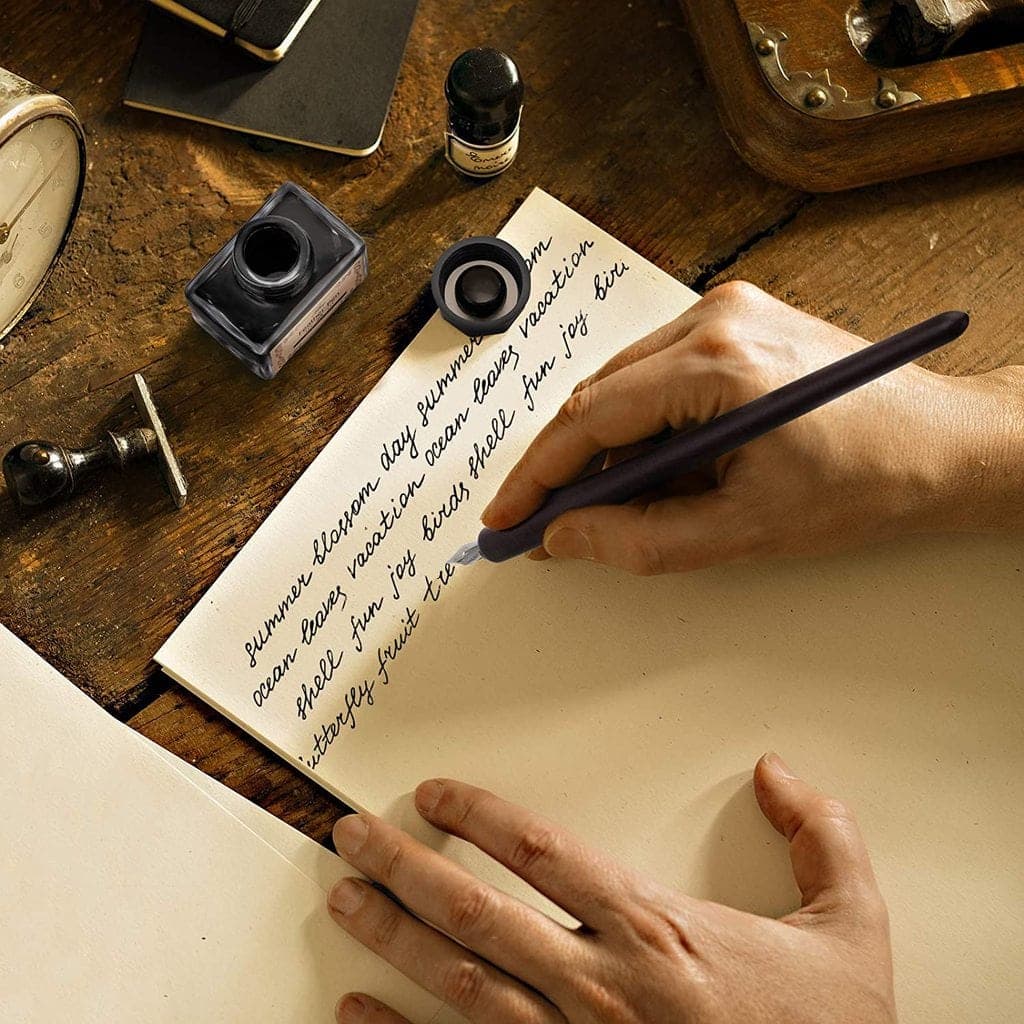 summer blossom day summer
ocean leaves vacation ocean leaves vacation
shell fun joy birds shell fun joy
butterfly fruit tre